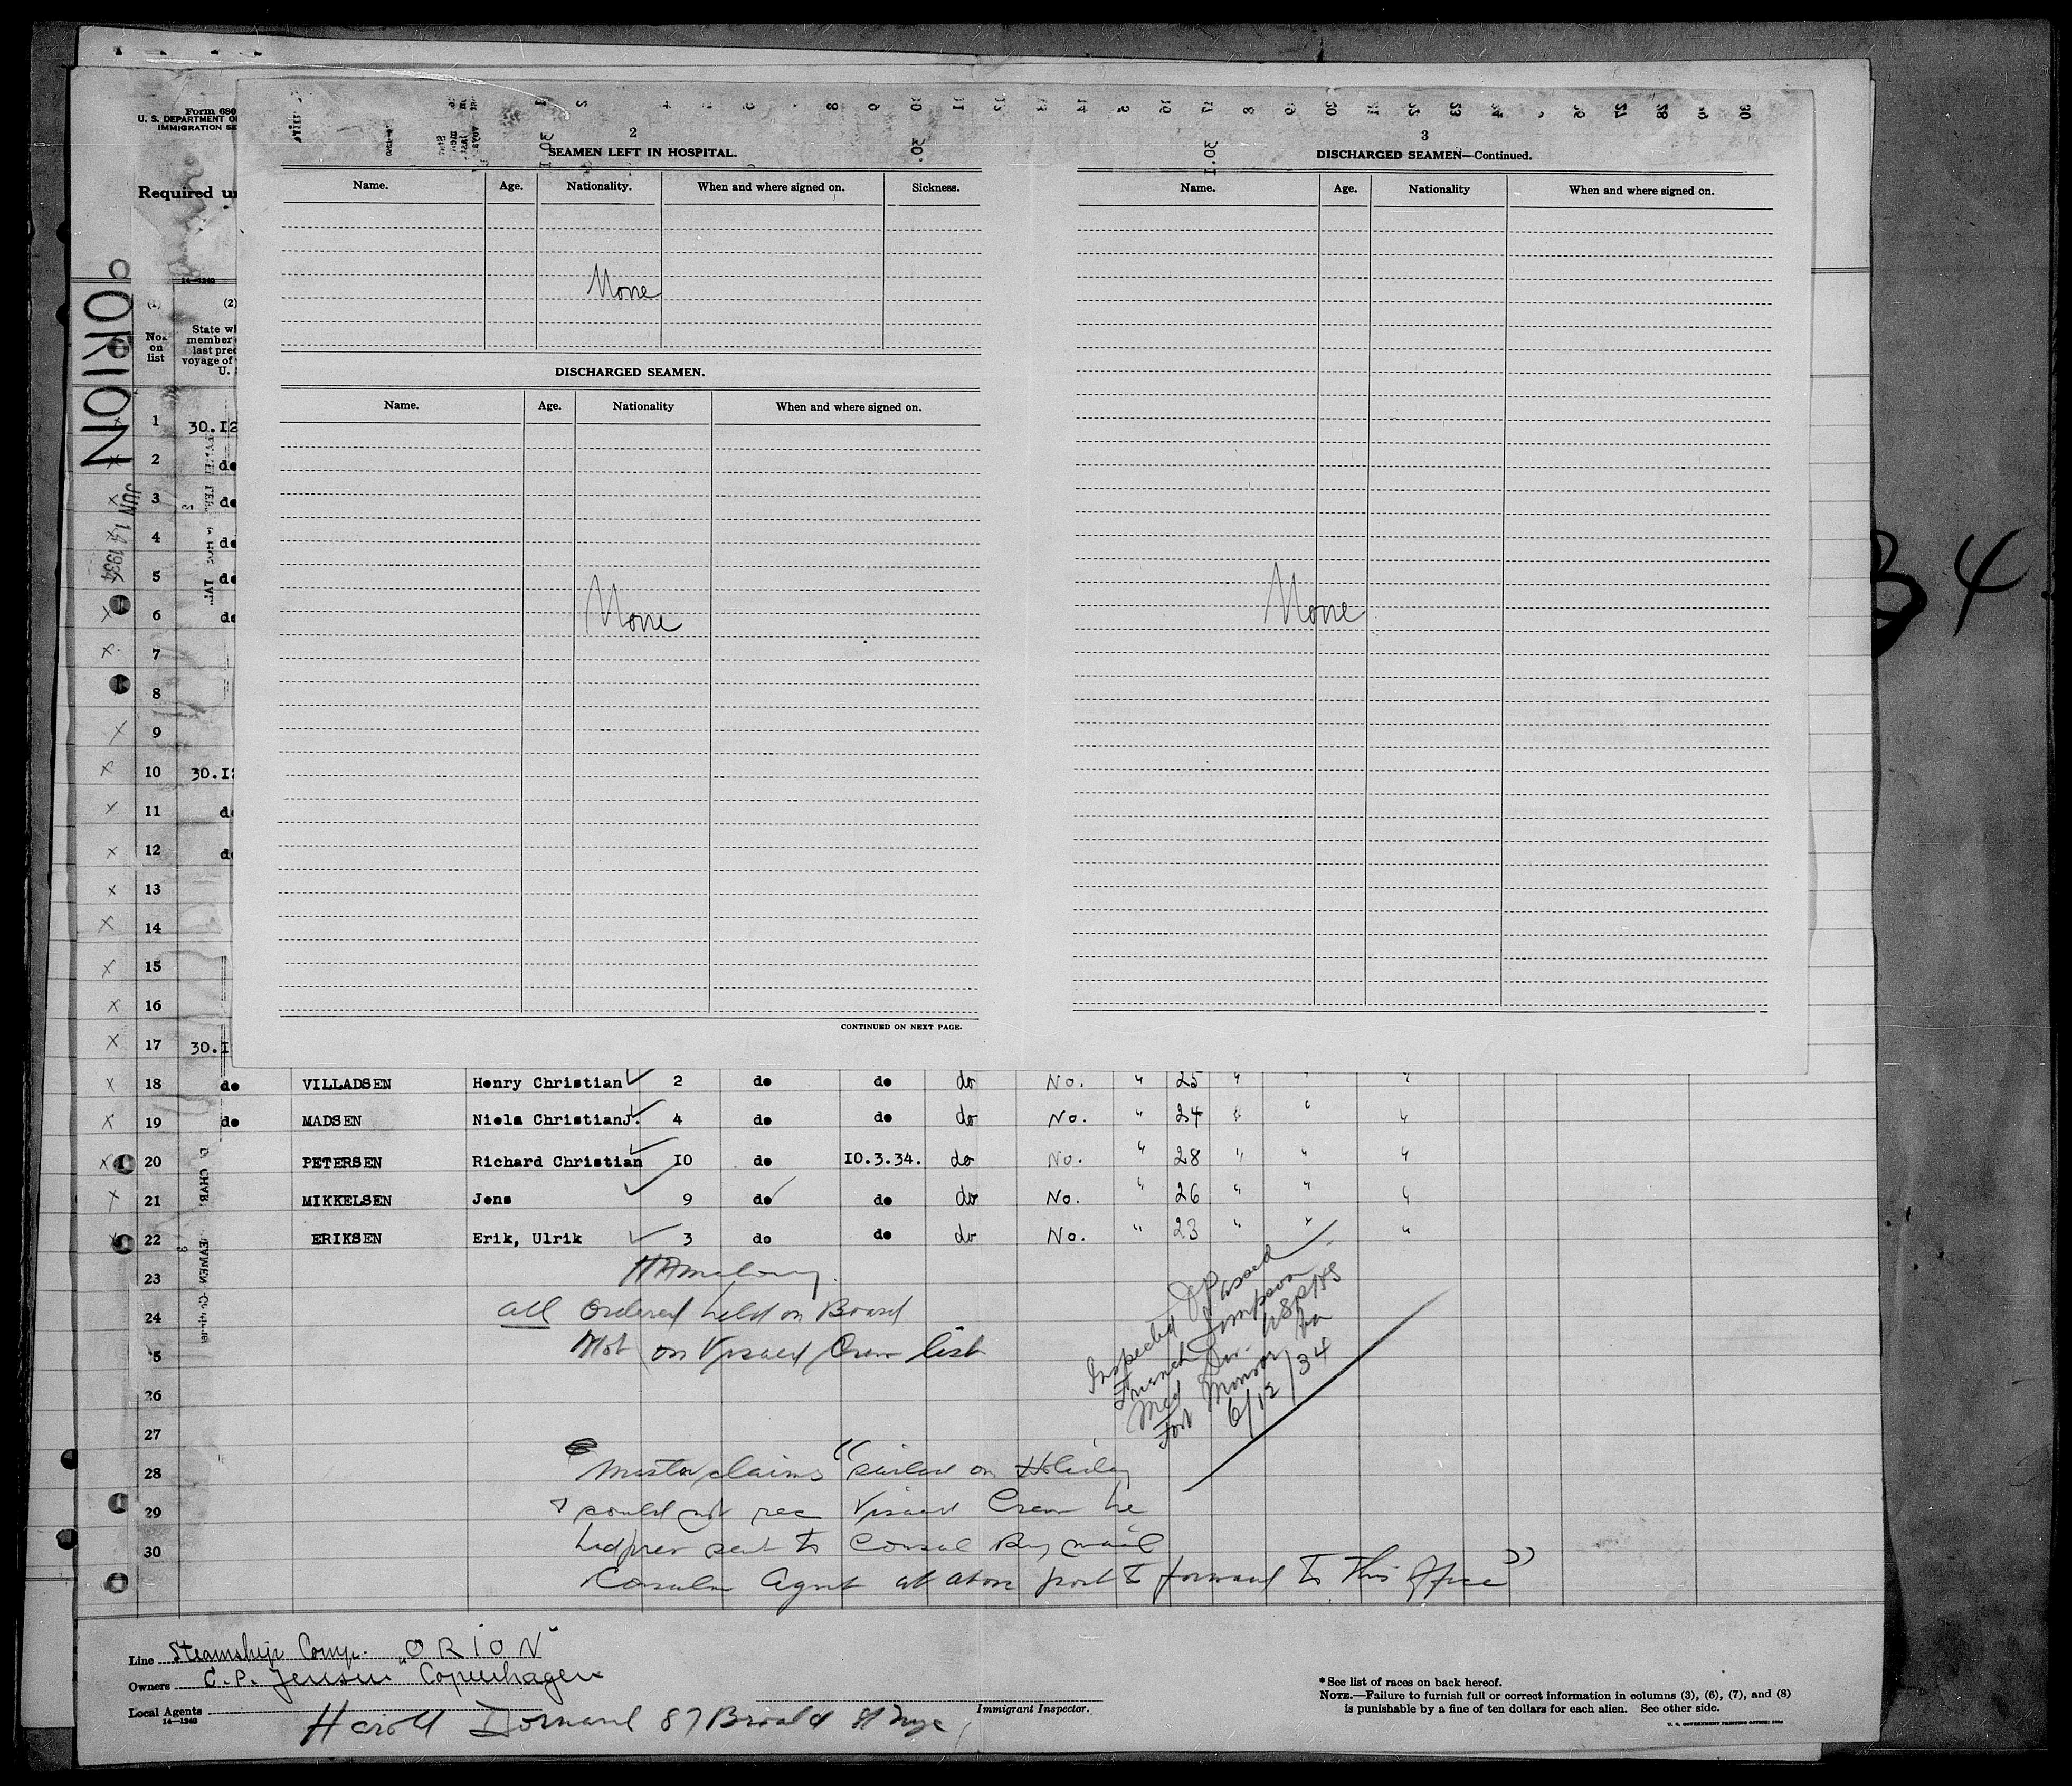 Form 680
U. S. DEPARTMENT OF
IMMIGRATION SE
Required un
ORION
JUN 14 1934
34
2
SEAMEN LEFT IN HOSPITAL.
Name. Age. Nationality. When and where signed on. Sickness.
None
DISCHARGED SEAMEN.
Name. Age. Nationality When and where signed on.
None
CONTINUED ON NEXT PAGE.
3
DISCHARGED SEAMEN—Continued.
Name. Age. Nationality When and where signed on.
None
14—1240
(1) (2)
No. on list
State wh
member
last prec
voyage of
U. S
1 30.12
2 do
3 do
4 do
5 do
6 do
7
8
9
10 30.1
11 do
12 do
13
14
15
16
17 30.1
18 do VILLADSEN Henry Christian 2 do do do No. " 25 " " "
19 do MADSEN Niels Christian J. 4 do do do No. " 24 " " "
20 PETERSEN Richard Christian 10 do 10.3.34. do No. " 28 " " "
21 MIKKELSEN Jens 9 do do do No. " 26 " " "
22 ERIKSEN Erik, Ulrik 3 do do do No. " 23 " " "
23
24 all Ordered held on Board
5 Not on Visaed Crew list
26
27
Inspected & Passed
Med
Fort Monroe Va
6/12/34
28 Master claims "Sailed on Holiday
29 & could not rec Visaed Crew he
30 sent to Consul By mail
Consular Agent at above port to forward to this office"
Line Steamship Comp. "ORION"
Owners C. P. Jensen Copenhagen
Local Agents
14—1240
Harold 87 Broad St
Immigrant Inspector.
* See list of races on back hereof.
NOTE.—Failure to furnish full or correct information in columns (3), (6), (7), and (8)
is punishable by a fine of ten dollars for each alien. See other side.